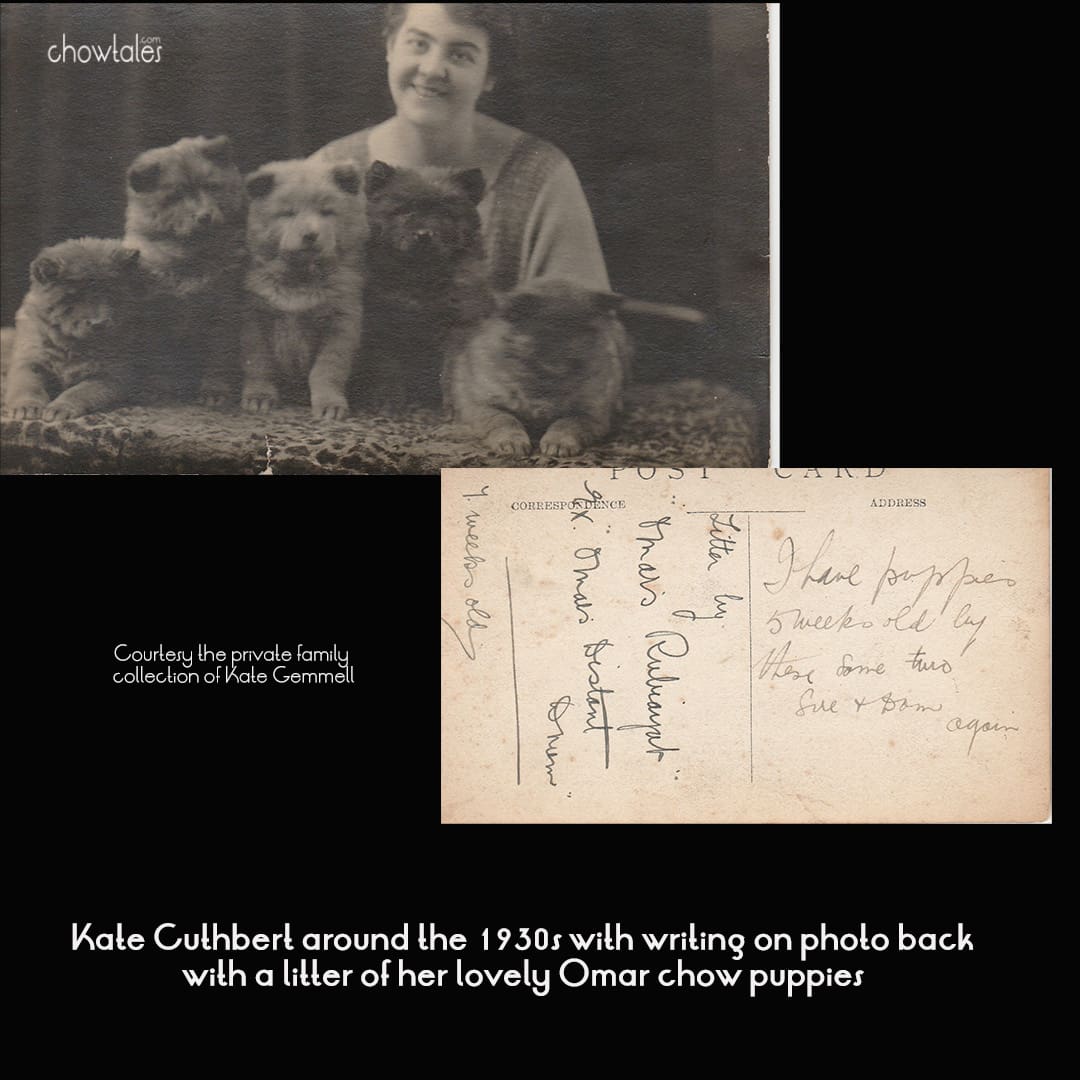 chowtales
.com
POST CARD
CORRESPONDENCE
ADDRESS
Litter by
"Omar's Rubiayat"
Ex. "Omar's Distant
7. weeks old
I have puppies
5 weeks old by
these same two
Sire + Dam
again
Courtesy the private family
collection of Kate Gemmell
Kate Cuthbert around the 1930s with writing on photo back
with a litter of her lovely Omar chow puppies